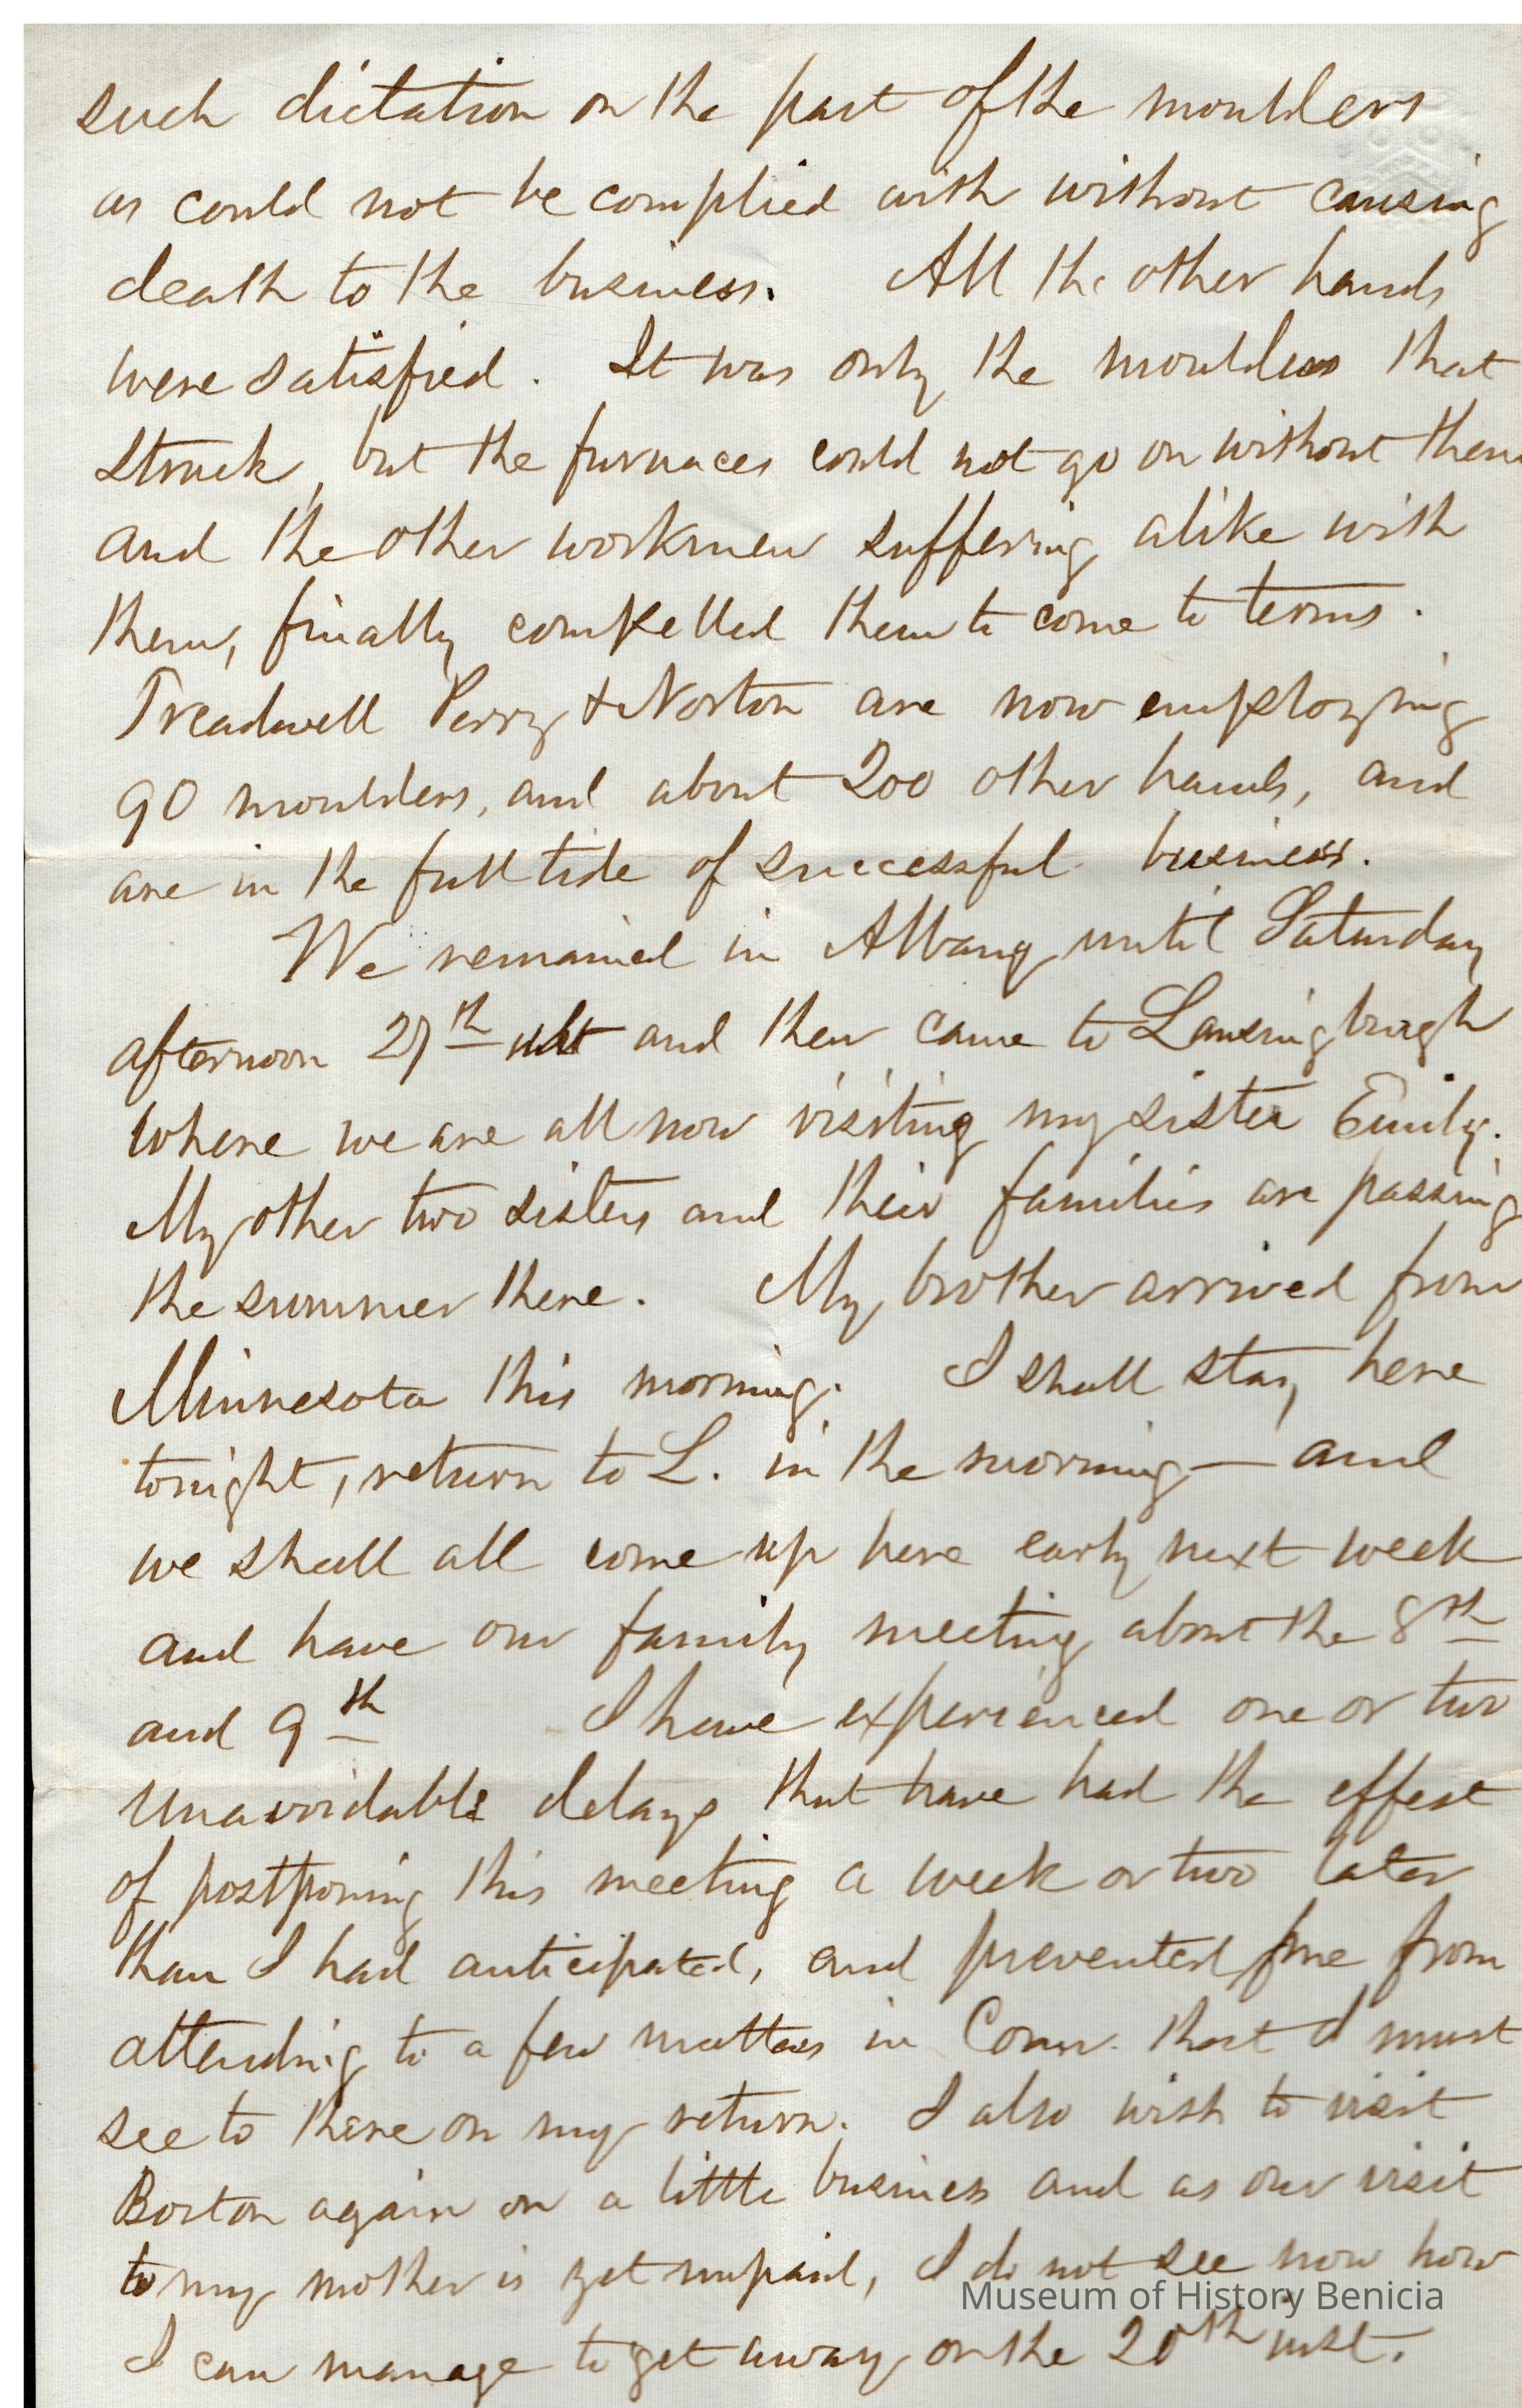 such dictation on the part of the moulders
as could not be complied with without causing
death to the business. All the other hands
were satisfied. It was only the moulders that
struck, but the furnaces could not go on without them
and the other workmen suffering alike with
them, finally compelled them to come to terms.
Treadwell Perry & Norton are now employing
90 moulders, and about 200 other hands, and
are in the full tide of successful business.
We remained in Albany until Saturday
afternoon 27th ult and then came to Lansingburgh
where we are all now visiting my sister Emily.
My other two sisters and their families are passing
the summer there. My brother arrived from
Minnesota this morning. I shall stay here
tonight, return to L. in the morning — and
we shall all come up here early next week
and have our family meeting about the 8th
and 9th I have experienced one or two
unavoidable delays that have had the effect
of postponing this meeting a week or two later
than I had anticipated, and prevented me from
attending to a few matters in Conn. that I must
see to there on my return. I also wish to visit
Boston again on a little business and as our visit
to my mother is yet unpaid, I do not see now how
I can manage to get away on the 20th inst.
Museum of History Benicia